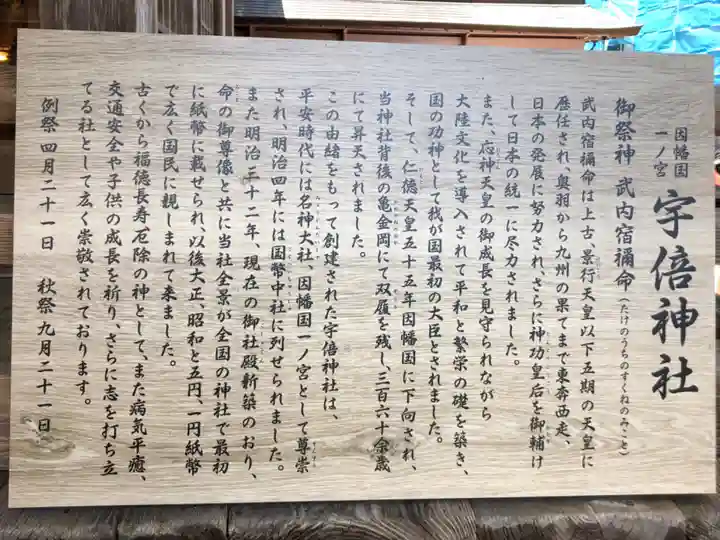 因幡国
一ノ宮
宇倍神社
御祭神 武内宿禰命(たけのうちのすくねのみこと)
武内宿禰命は上古、景行天皇以下五期の天皇に
歴任され、奥羽から九州の果てまで東奔西走、
日本の発展に努力され、さらに神功皇后を御輔け
して日本の統一に尽力されました。
また、応神天皇の御成長を見守られながら
大陸文化を導入されて平和と繁栄の礎を築き、
国の功神として我が国最初の大臣とされました。
そして、仁徳天皇五十五年因幡国に下向され、
当神社背後の亀金岡にて双履を残し、三百六十余歳
にて昇天されました。
この由緒をもって創建された宇倍神社は、
平安時代には名神大社、因幡国一ノ宮として尊崇
され、明治四年には国幣中社に列せられました。
また明治三十二年、現在の御社殿新築のおり、
命の御尊像と共に当社全景が全国の神社で最初
に紙幣に載せられ、以後大正、昭和と五円、一円紙幣
で広く国民に親しまれて来ました。
古くから福徳長寿厄除の神として、また病気平癒、
交通安全や子供の成長を祈り、さらに志を打ち立
てる社として広く崇敬されております。
例祭四月二十一日 秋祭九月二十一日